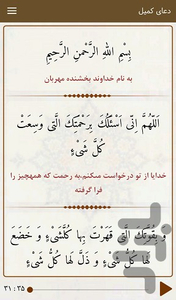 دعای کمیل
بِسْمِ اللهِ الرَّحْمنِ الرَّحیمِ
به نام خداوند بخشنده مهربان
اَللّهُمَّ اِنّی اَسْئَلُكَ بِرَحْمَتِكَ الَّتی وَسِعَتْ
كُلَّ شَیْءٍ
خدایا از تو درخواست میکنم،به رحمت که همهچیز را
فرا گرفته
وَ بِقُوَّتِكَ الَّتی قَهَرْتَ بِها كُلَّشَیْءٍ وَ خَضَعَ
لَها كُلُّ شَیْءٍ وَ ذَلَّ لَها كُلُّ شَیْءٍ
بازار
۳۱ : ۳۵